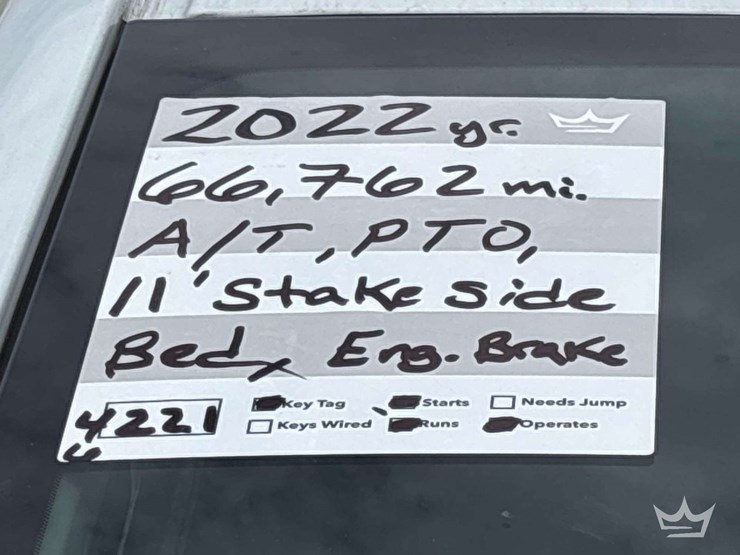 2022 yr.
66,762 mi.
A/T, PTO,
11' Stake Side
Bed, Eng. Brake
Key Tag Starts Needs Jump
4221 Keys Wired Runs Operates